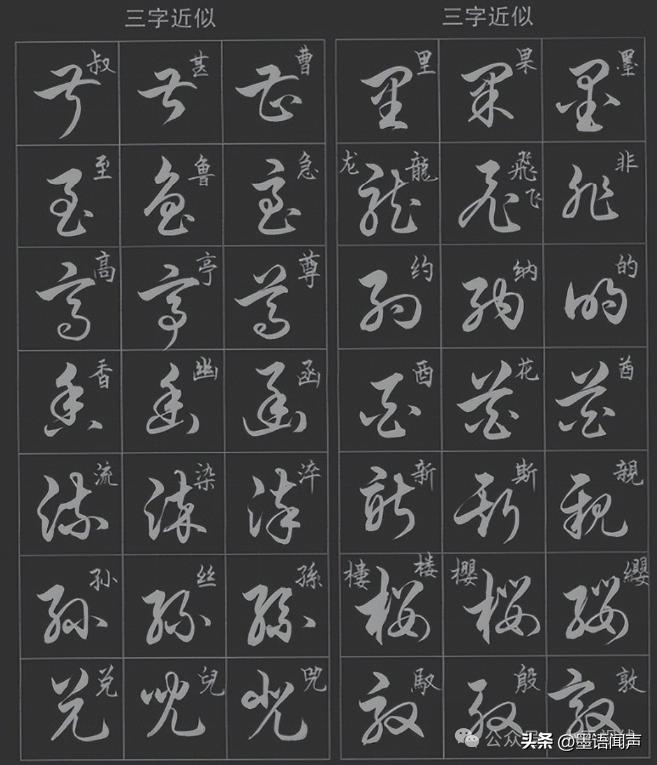 三字近似
叔 甚 曹
至 鲁 急
高 亭 尊
香 幽 函
流 染 淬
孙 丝 孫
兑 兒 兕
三字近似
里 果 墨
龙 龍 飛 飞 非
约 纳 的
酉 花 酋
新 斯 親
楼 櫻 纓
馭 殷 敦
公众号
头条 @墨语闻声